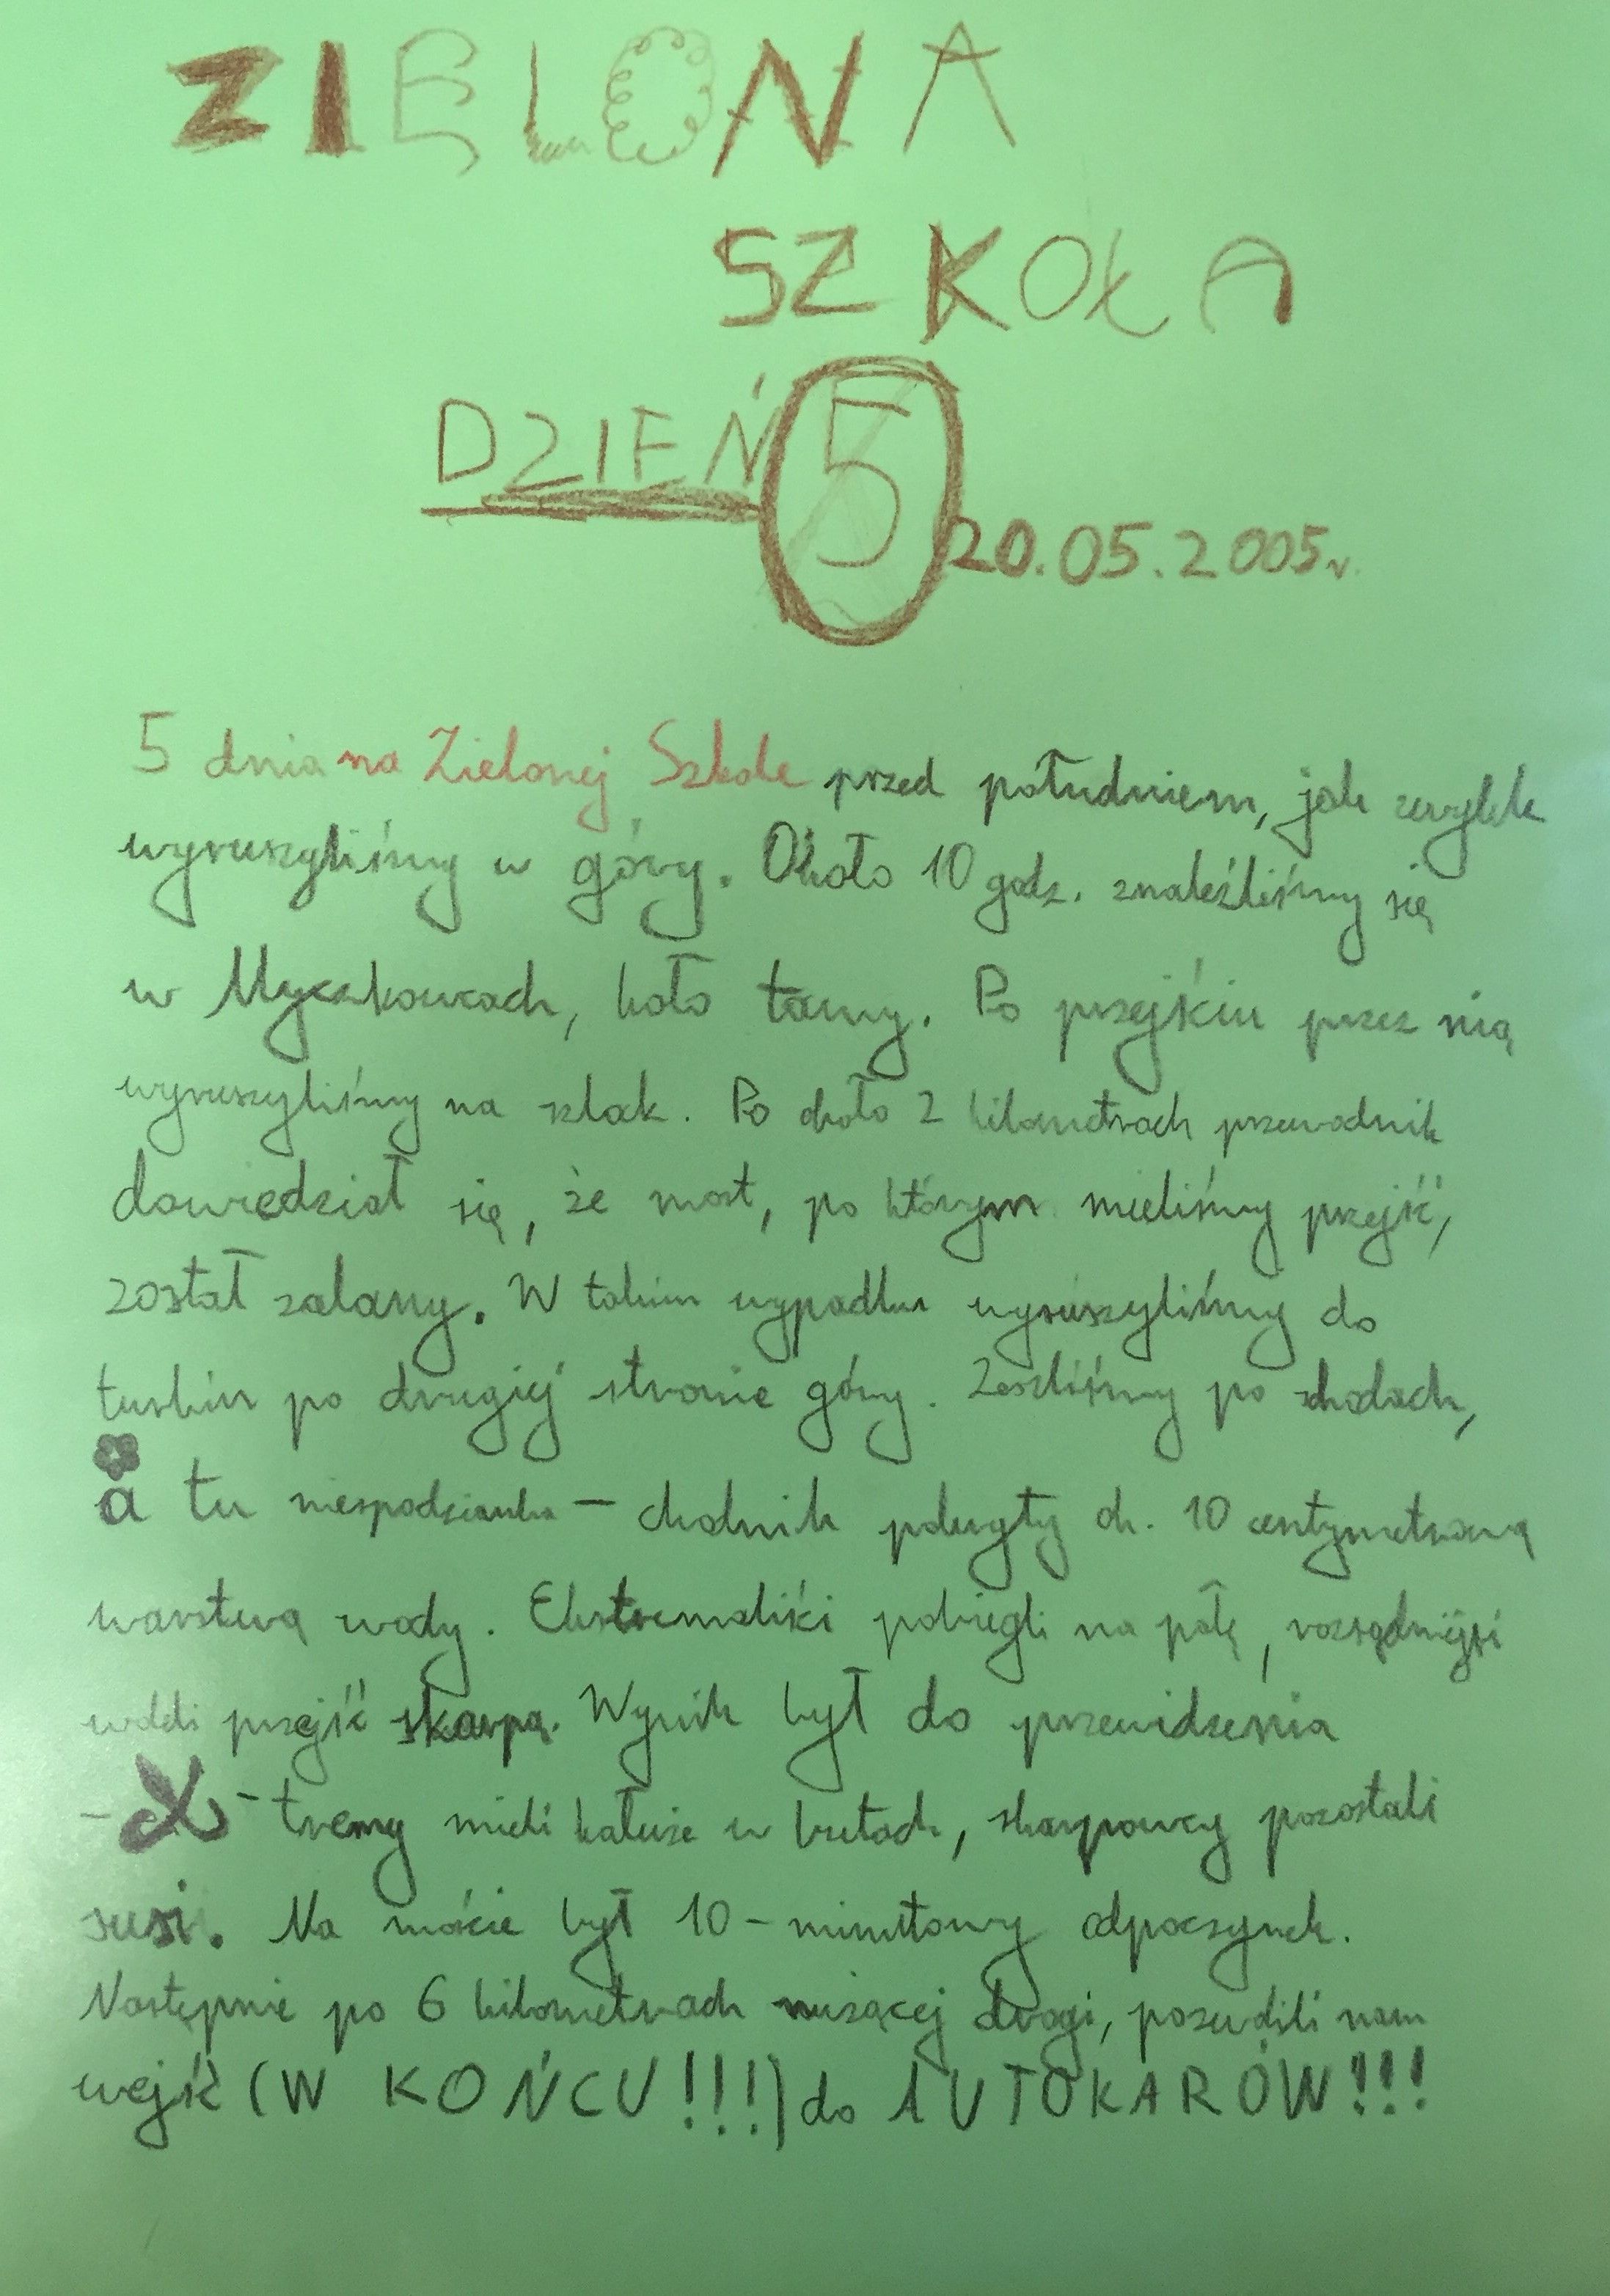 ZIELONA
SZKOŁA
DZIEŃ 5 20.05.2005r.
5 dnia na Zielonej Szkole przed południem, jak zwykle
wyruszyliśmy w góry. Około 10 godz. znaleźliśmy się
w Myczkowcach, koło tamy. Po przejściu przez nią
wyruszyliśmy na szlak. Po około 2 kilometrach przewodnik
dowiedział się, że most, po którym mieliśmy przejść,
został zalany. W takim wypadku wyruszyliśmy do
turbin po drugiej stronie góry. Zeszliśmy po schodach,
a tu niespodzianka – chodnik pokryty ok. 10 centymetrową
warstwą wody. Ekstremaliki pobiegli na pałę, rozsądniejsi
woleli przejść skarpą. Wynik był do przewidzenia
- X - tremy mieli kałuże w butach, skarpowcy pozostali
susi. Na moście był 10-minutowy odpoczynek.
Następnie po 6 kilometrach nużącej drogi, pozwolili nam
wejść (W KOŃCU!!!) do AUTOKARÓW!!!